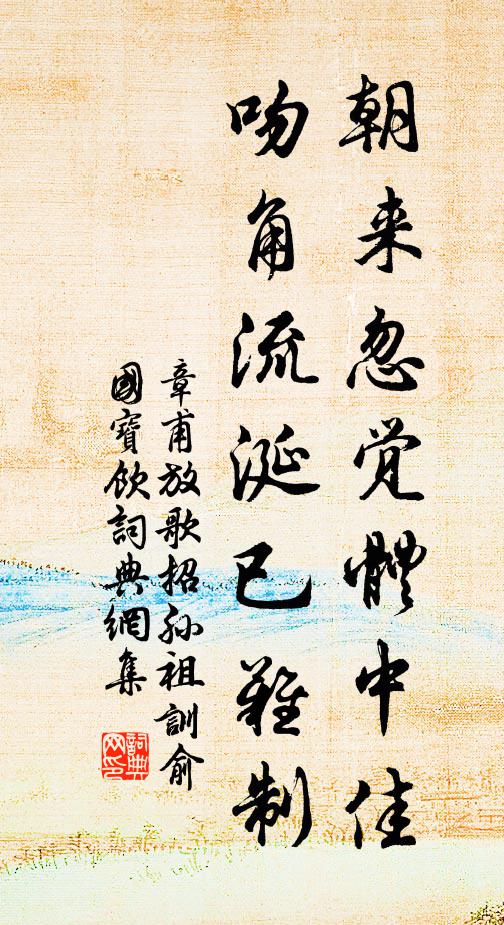 朝来忽觉體中佳
吻角流涎已難制
章甫放歌招孙祖訓俞
國寶飲詞典網集
詞典網印